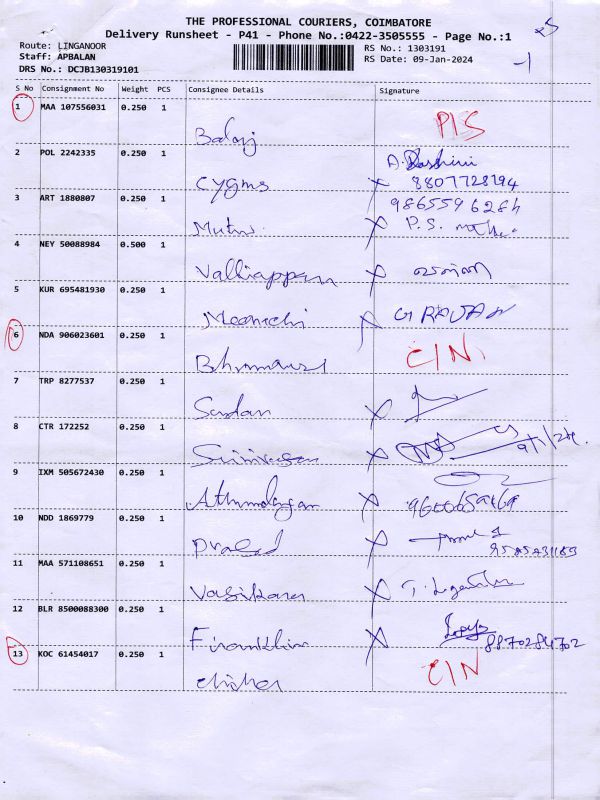 THE PROFESSIONAL COURIERS, COIMBATORE
Delivery Runsheet - P41 - Phone No.:0422-3505555 - Page No.:1
Route: LINGANOOR RS No.: 1303191
Staff: APBALAN RS Date: 09-Jan-2024
DRS No.: DCJB130319101
S No Consignment No Weight PCS Consignee Details Signature
1 MAA 107556031 0.250 1
Balaj P/S
2 POL 2242335 0.250 1
Cygms 8807728194
3 ART 1880807 0.250 1
Mutus P.S.
4 NEY 50088984 0.500 1
Valliappan
5 KUR 695481930 0.250 1
Meenachi
6 NDA 906023601 0.250 1 C/N
7 TRP 8277537 0.250 1
Sudan
8 CTR 172252 0.250 1
Srinivasan 9/1/24
9 IXM 505672430 0.250 1
10 NDD 1869779 0.250 1
Prasad
11 MAA 571108651 0.250 1
Vasikaran
12 BLR 8500088300 0.250 1
Franklin 8870284702
13 KOC 61454017 0.250 1 C/N